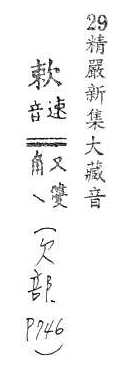 29精嚴新集大藏音
欶 速音 又雙角丶
(欠部 P746)